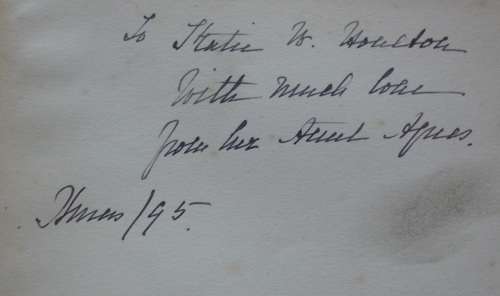 To Katie W. Houston
With much love
from her Aunt Agnes.
Xmas /95.